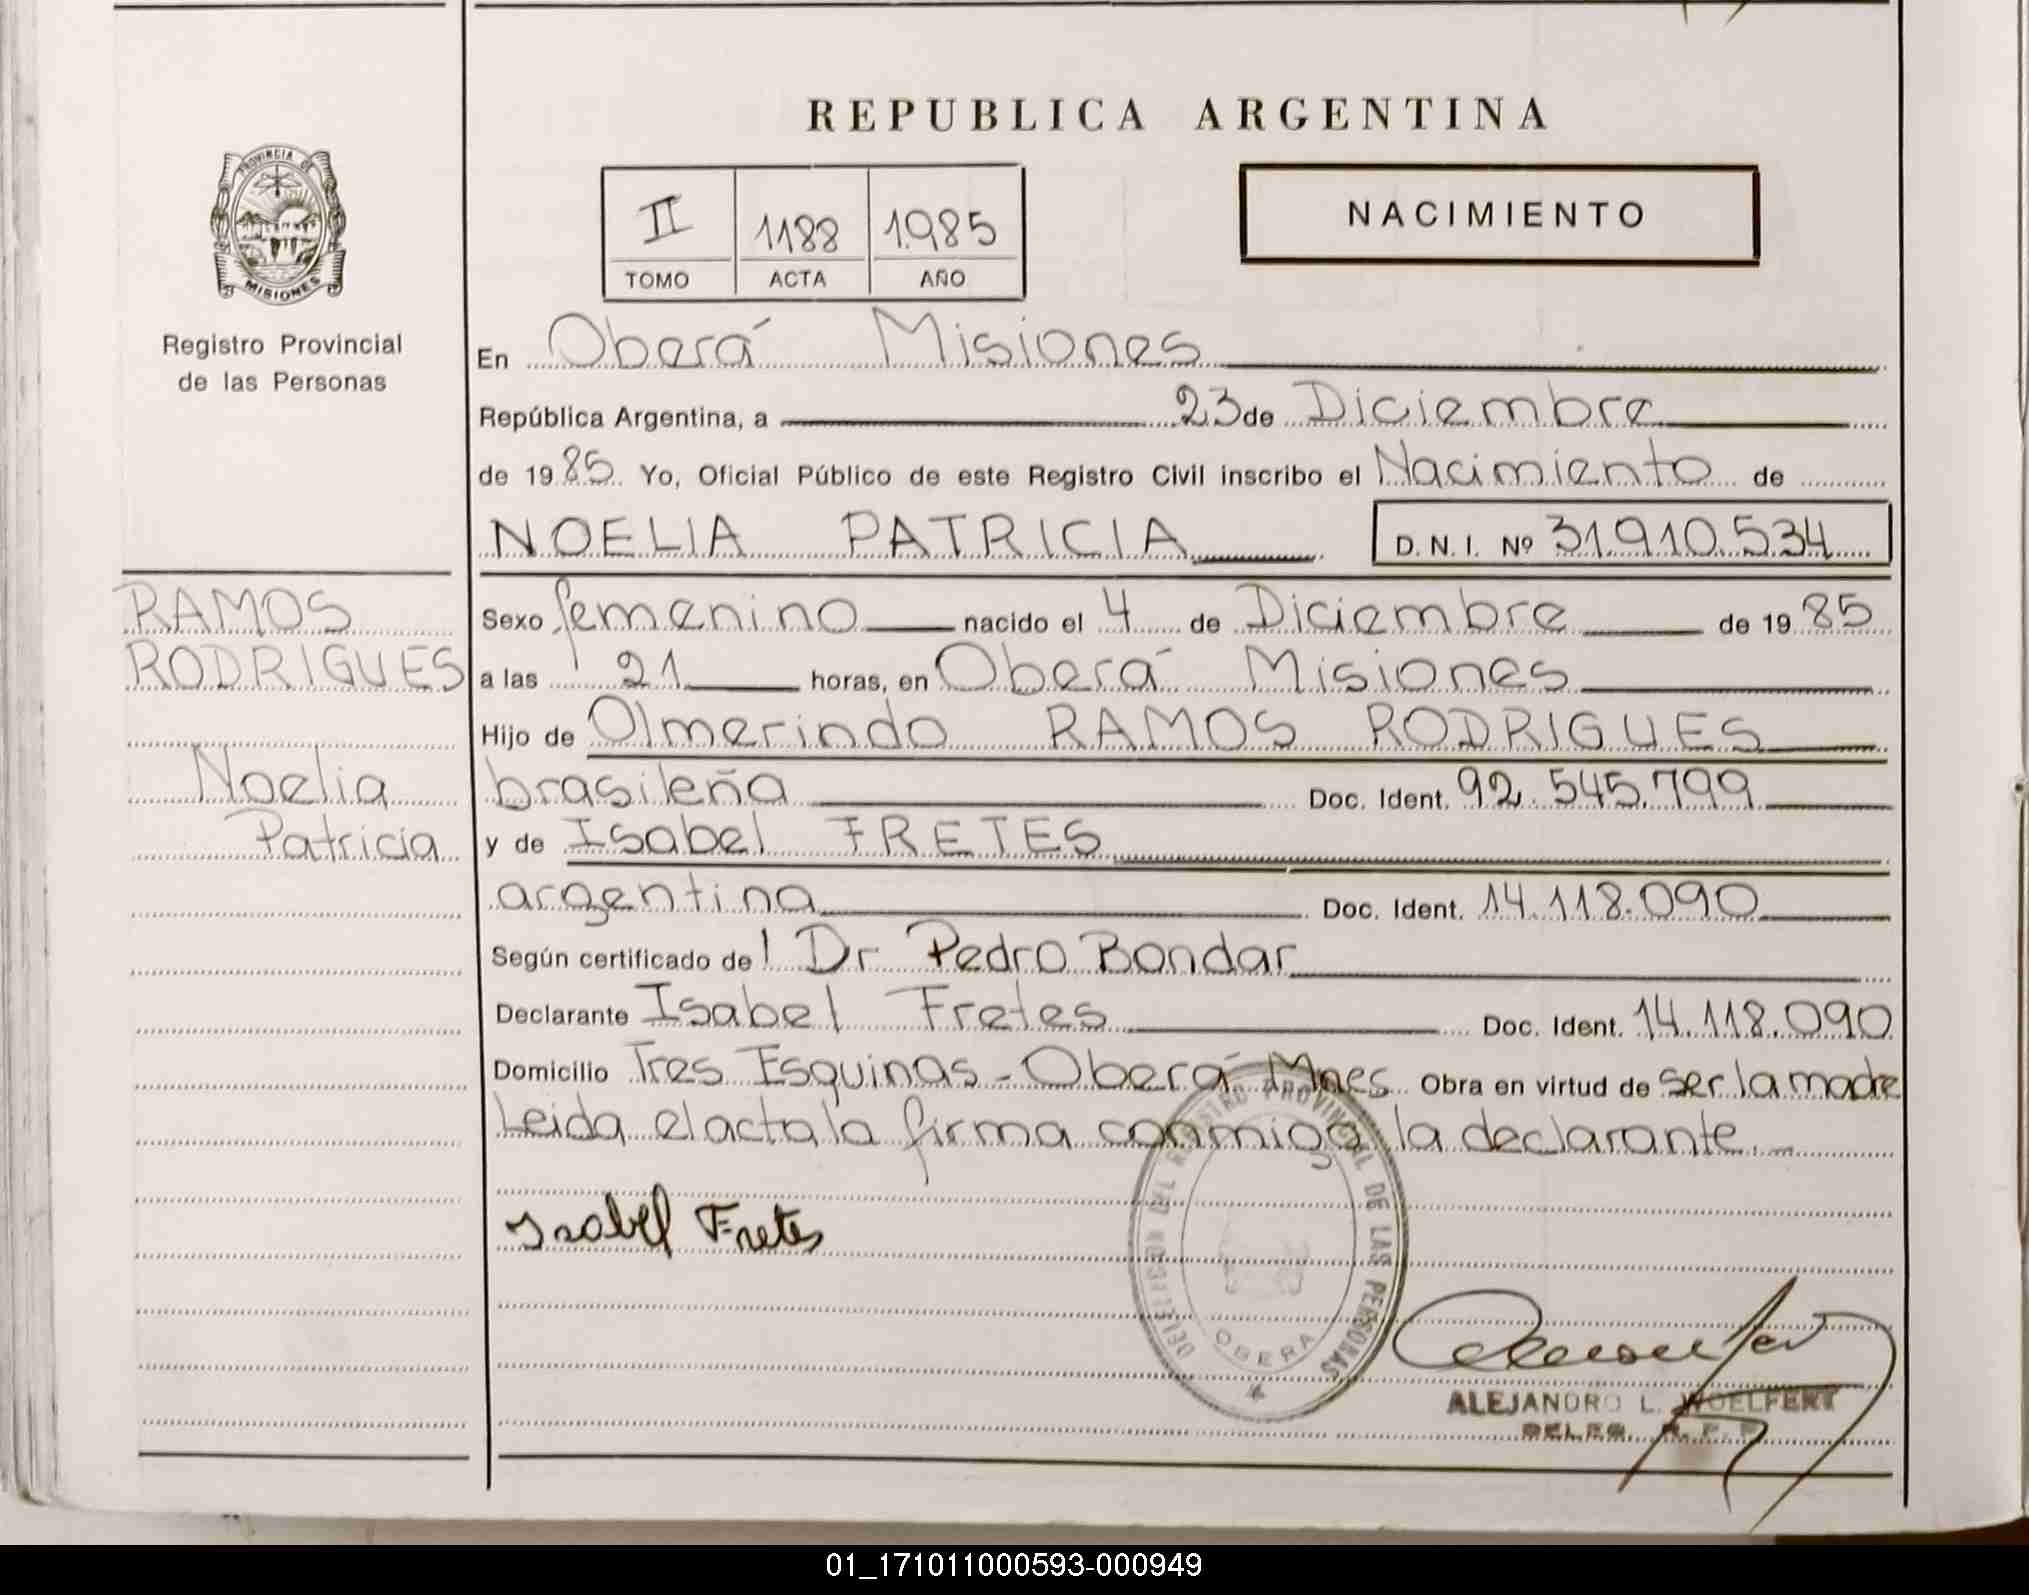 REPUBLICA ARGENTINA
PROVINCIA DE
MISIONES
Registro Provincial
de las Personas
II 1188 1.985
TOMO ACTA AÑO
NACIMIENTO
En Oberá Misiones
República Argentina, a 23 de Diciembre
de 19 85 Yo, Oficial Público de este Registro Civil inscribo el Nacimiento de
NOELIA PATRICIA D. N. I. Nº 31.910.534
RAMOS
RODRIGUES
Noelia
Patricia
Sexo femenino nacido el 4 de Diciembre de 19 85
a las 21 horas, en Oberá Misiones
Hijo de Olmerindo RAMOS RODRIGUES
brasileña Doc. Ident. 92.545.799
y de Isabel FRETES
argentina Doc. Ident. 14.118.090
Según certificado de l Dr Pedro Bondar
Declarante Isabel Fretes Doc. Ident. 14.118.090
Domicilio Tres Esquinas - Oberá Mnes Obra en virtud de ser la madre
Leida el acta la firma conmigo la declarante.
Isabel Fretes
DELEGACION DEL REGISTRO PROVINCIAL DE LAS PERSONAS
OBERA
ALEJANDRO L. WOELFERT
DELEG. R. P. P.
01_171011000593-000949